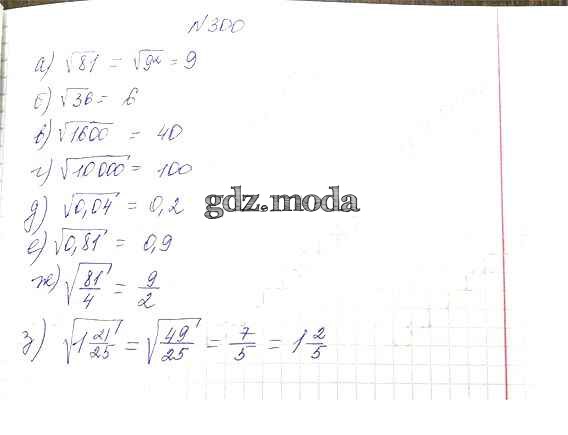 N300
а) √81 = √9² = 9
б) √36 = 6
в) √1600 = 40
г) √10000 = 100
д) √0,04 = 0,2
gdz.moda
е) √0,81 = 0,9
ж) √81/4 = 9/2
з) √1 21/25 = √49/25 = 7/5 = 1 2/5